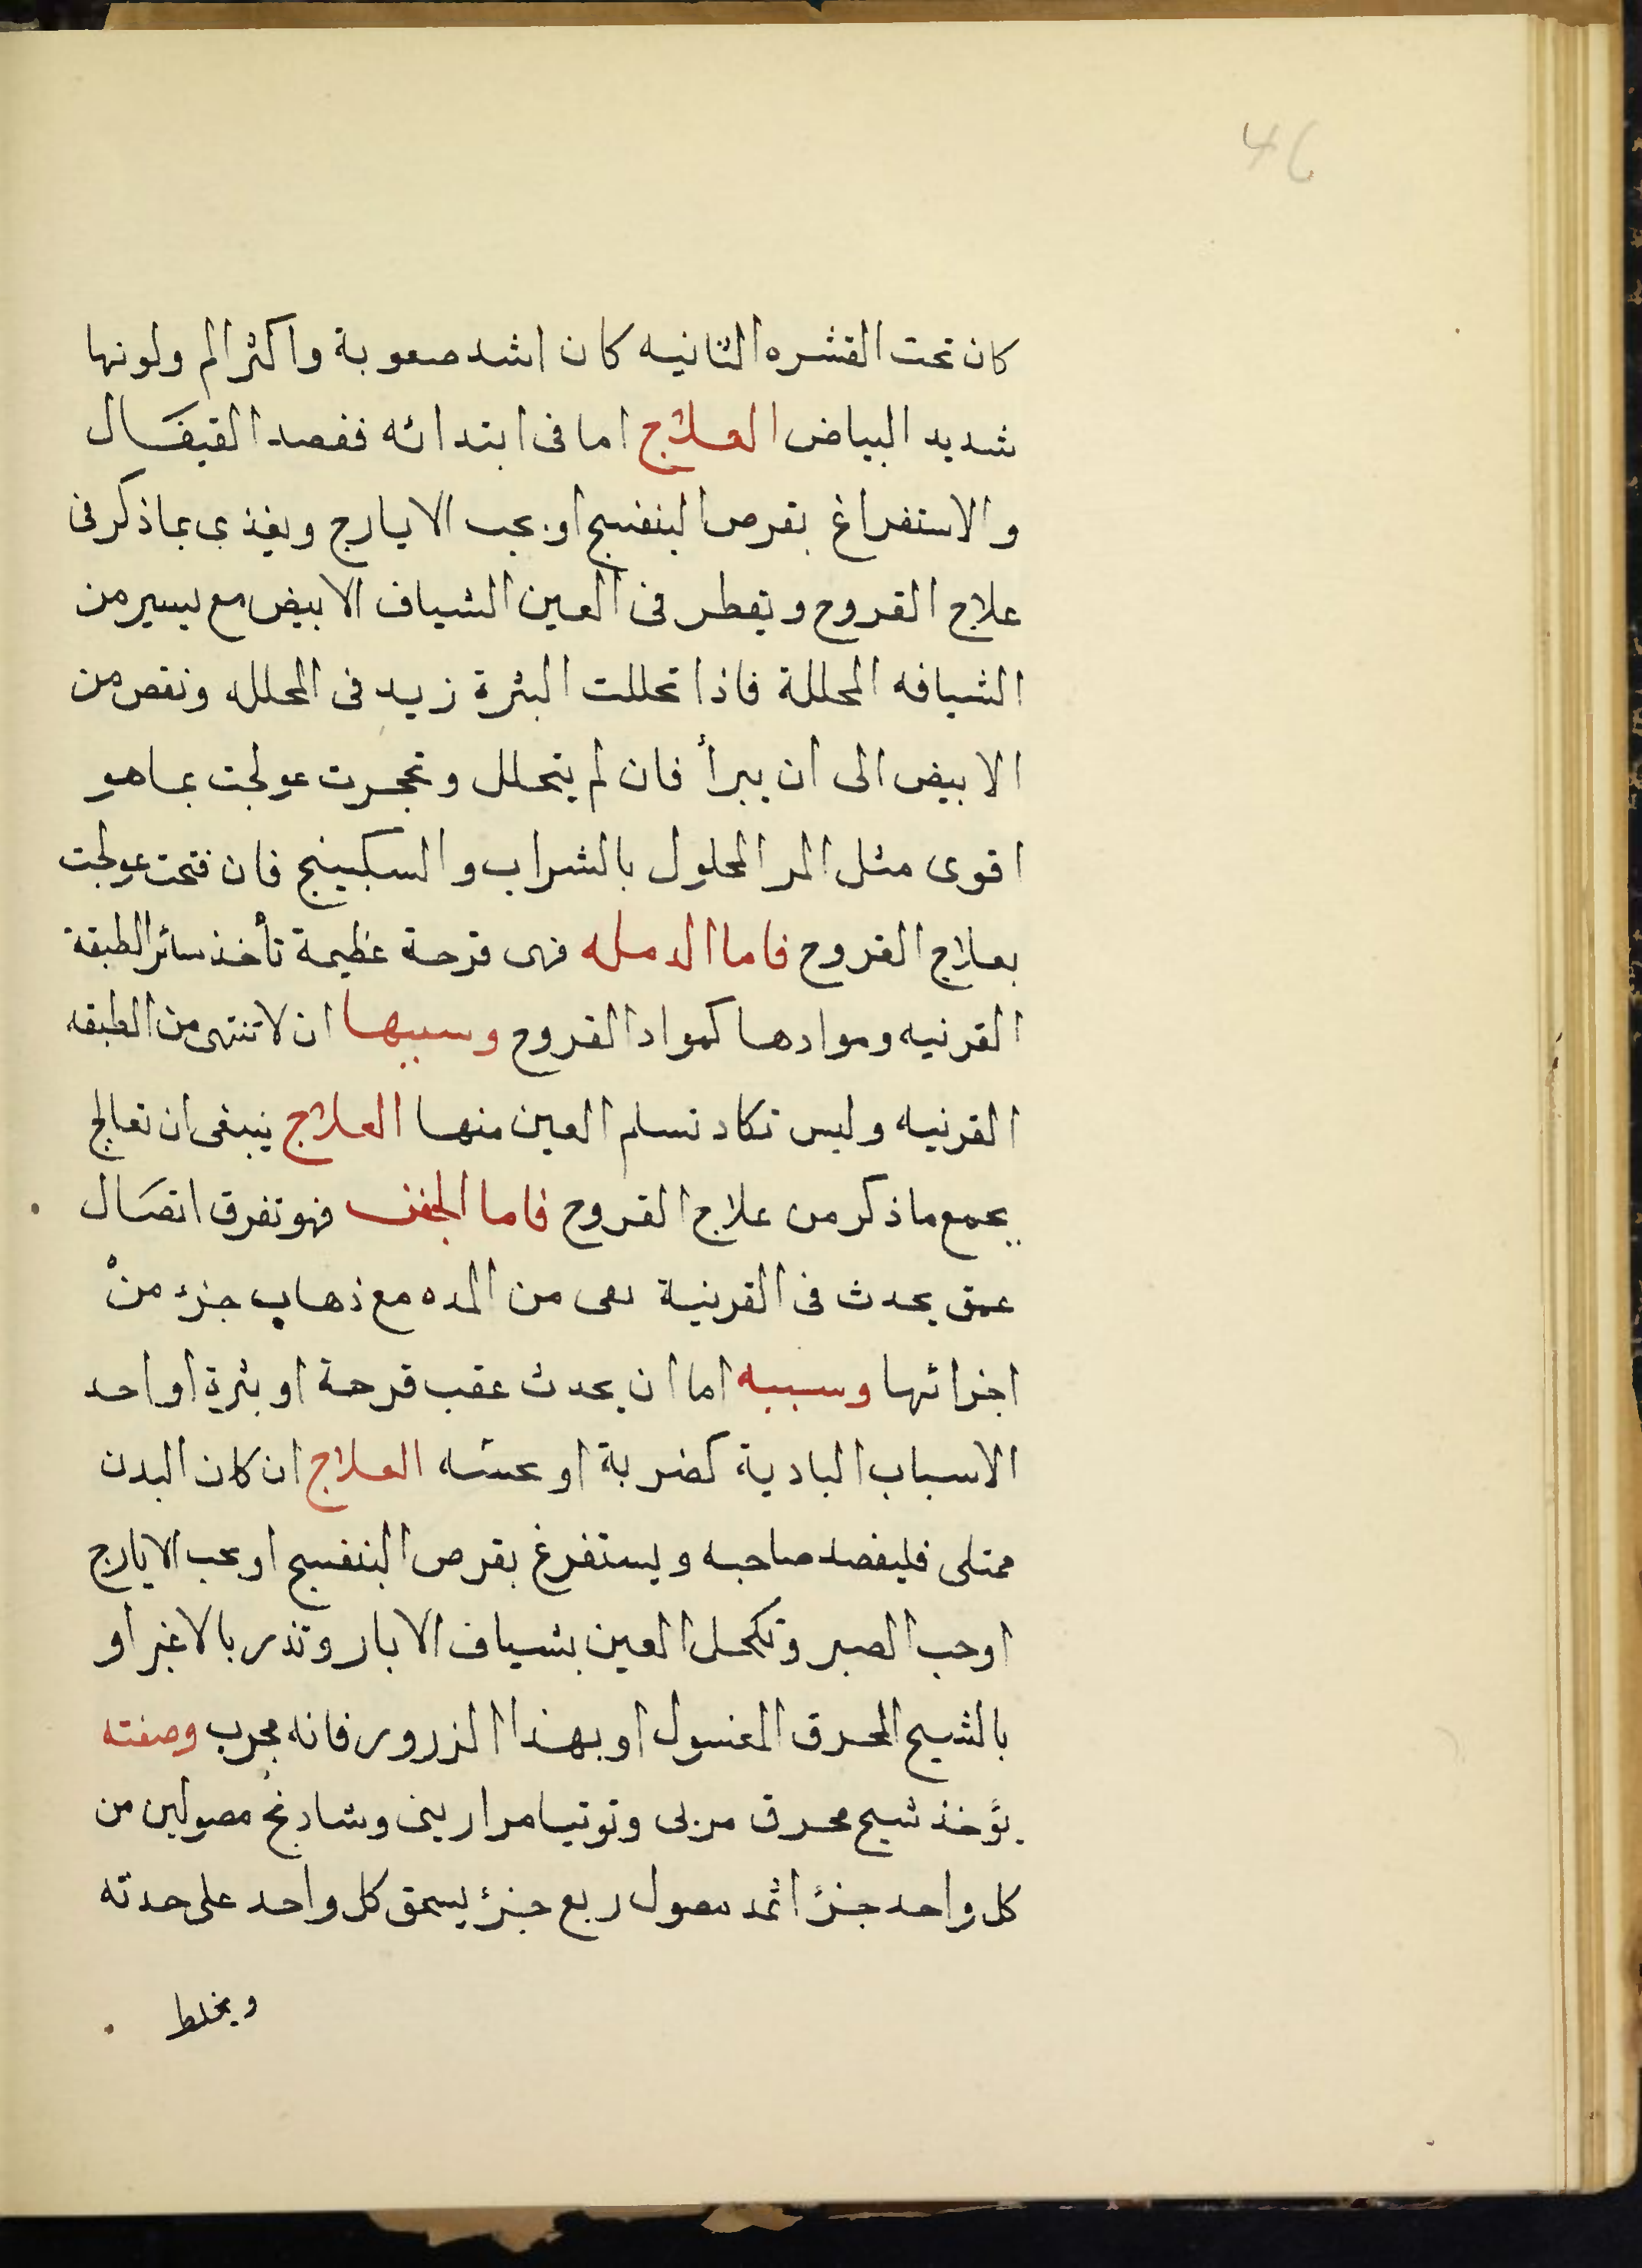 46
كان تحت القشره الثانيه كان اشد صعوبة واكثر الم ولونها
شديد البياض العلاج اما فى ابتدائه ففصد القيفال
والاستفراغ بقرص البنفسج او بحب الايارج ويغذى بما ذكر فى
علاج القروح ويقطر فى العين الشياف الابيض مع يسير من
الشيافه المحللة فاذا تحللت البثرة زيد فى المحلله ونقص من
الابيض الى ان يبرأ فان لم يتحلل وتحجرت عولجت بما هو
اقوى مثل المر المحلول بالشراب والسكبينج فان فتحت عولجت
بعلاج القروح فاما الدمله فهى قرحة عظيمة تأخذ سائر الطبقة
القرنيه وموادها كمواد القروح وسببها ان لا تنتهى من الطبقه
القرنيه وليس تكاد تسلم العين منها العلاج ينبغى ان تعالج
بجمع ما ذكر من علاج القروح فاما الحفر فهو تفرق اتصال
عمق يحدث فى القرنية نقى من المده مع ذهاب جزء من
اجزائها وسببه اما ان يحدث عقب قرحة او بثرة او احد
الاسباب البادية كضربة او العلاج ان كان البدن
ممتلى فليفصد صاحبه ويستفرغ بقرص البنفسج او بحب الايارج
او حب الصبر وتكحل العين بشياف الابار وتذر بالاغبر او
بالشيح المحرق المغسول او بهذا الزرور فانه مجرب وصفته
يؤخذ شيح محرق مربى وتوتيا مرازبى وشادنج مصولين من
كل واحد جزء اثمد مصول ربع جزء يسحق كل واحد على حدته
ويخلط